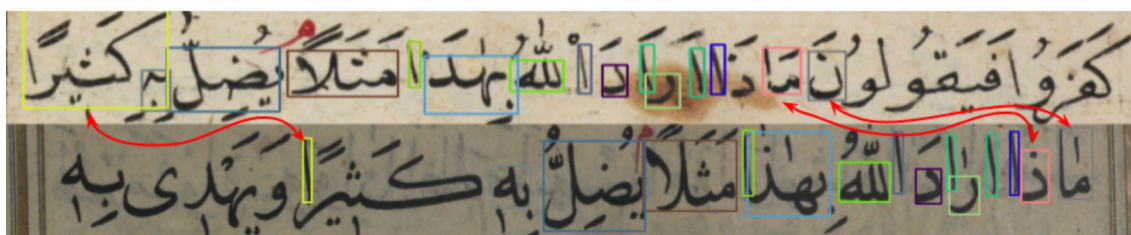 كَفَرُوا فَيَقُولُونَ مَاذَا اَرَادَ اللّٰهُ بِهٰذَا مَثَلًا يُضِلُّ بِهِ كَثِيرًا
مَاذَا اَرَادَ اللّٰهُ بِهٰذَا مَثَلًا يُضِلُّ بِهِ كَثِيرًا وَيَهْدِى بِهِ